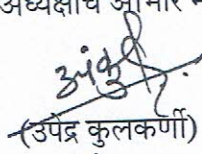 अध्यक्षांचे आभार
(उपेंद्र कुलकर्णी)